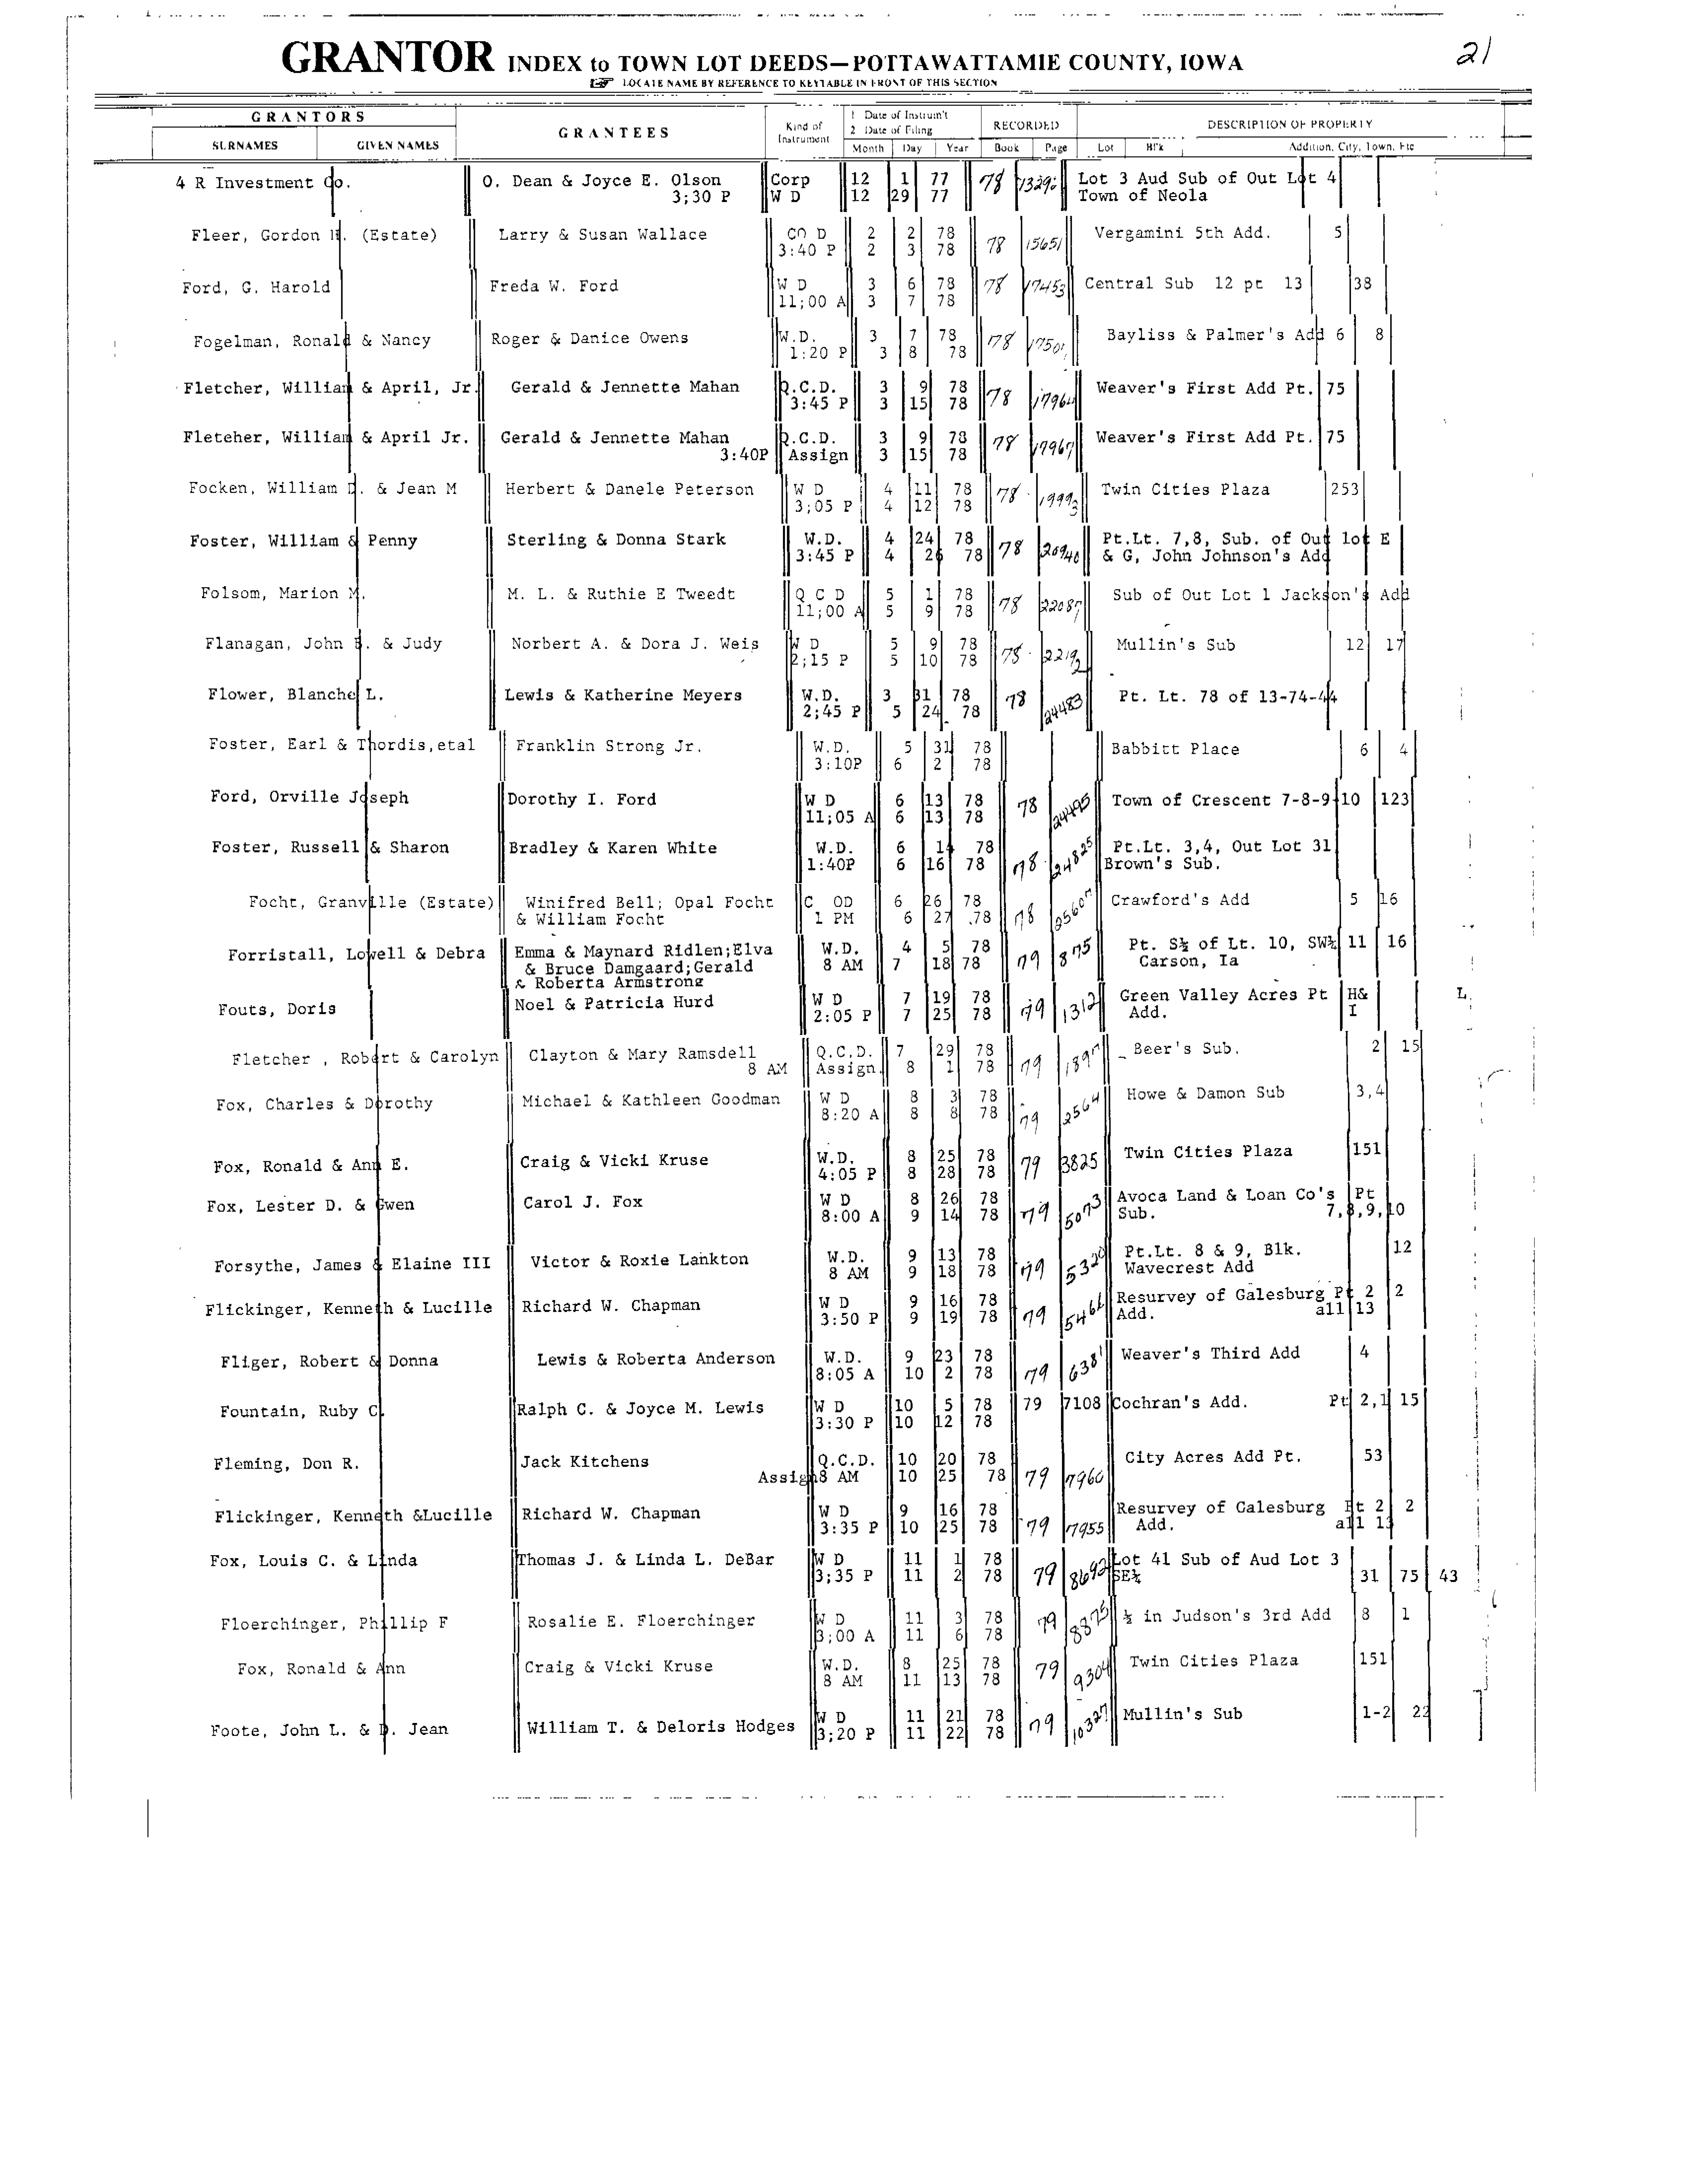 21
GRANTOR INDEX to TOWN LOT DEEDS—POTTAWATTAMIE COUNTY, IOWA
LOCATE NAME BY REFERENCE TO KEYTABLE IN FRONT OF THIS SECTION
GRANTORS GRANTEES Kind of Instrument 1 Date of Instrum't 2 Date of Filing RECORDED DESCRIPTION OF PROPERTY
SURNAMES GIVEN NAMES Month Day Year Book Page Lot Bl'k Addition, City, Town, Etc
4 R Investment Co. O. Dean & Joyce E. Olson Corp 12 1 77 78 Lot 3 Aud Sub of Out Lot 4
3;30 P W D 12 29 77 Town of Neola
Fleer, Gordon H. (Estate) Larry & Susan Wallace CO D 2 2 78 78 15651 Vergamini 5th Add. 5
3:40 P 2 3 78
Ford, G. Harold Freda W. Ford W D 3 6 78 78 17453 Central Sub 12 pt 13 38
11;00 A 3 7 78
Fogelman, Ronald & Nancy Roger & Danice Owens W.D. 3 7 78 78 Bayliss & Palmer's Add 6 8
1:20 P 3 8 78
Fletcher, William & April, Jr. Gerald & Jennette Mahan Q.C.D. 3 9 78 78 17964 Weaver's First Add Pt. 75
3:45 P 3 15 78
Fletcher, William & April Jr. Gerald & Jennette Mahan Q.C.D. 3 9 78 78 17967 Weaver's First Add Pt. 75
3:40P Assign 3 15 78
Focken, William D. & Jean M Herbert & Danele Peterson W D 4 11 78 78 19993 Twin Cities Plaza 253
3;05 P 4 12 78
Foster, William & Penny Sterling & Donna Stark W.D. 4 24 78 78 20940 Pt.Lt. 7,8, Sub. of Out lot E
3:45 P 4 26 78 & G, John Johnson's Add
Folsom, Marion M. M. L. & Ruthie E Tweedt Q C D 5 1 78 78 22087 Sub of Out Lot 1 Jackson's Add
11;00 A 5 9 78
Flanagan, John B. & Judy Norbert A. & Dora J. Weis W D 5 9 78 78 22192 Mullin's Sub 12 17
2;15 P 5 10 78
Flower, Blanche L. Lewis & Katherine Meyers W.D. 3 31 78 78 24483 Pt. Lt. 78 of 13-74-44
2;45 P 5 24 78
Foster, Earl & Thordis,etal Franklin Strong Jr. W.D. 5 31 78 Babbitt Place 6 4
3:10P 6 2 78
Ford, Orville Joseph Dorothy I. Ford W D 6 13 78 78 24495 Town of Crescent 7-8-9-10 123
11;05 A 6 13 78
Foster, Russell & Sharon Bradley & Karen White W.D. 6 14 78 78 24825 Pt.Lt. 3,4, Out Lot 31
1:40P 6 16 78 Brown's Sub.
Focht, Granville (Estate) Winifred Bell; Opal Focht C OD 6 26 78 78 25607 Crawford's Add 5 16
& William Focht 1 PM 6 27 78
Forristall, Lowell & Debra Emma & Maynard Ridlen;Elva W.D. 4 5 78 79 875 Pt. S½ of Lt. 10, SW¼ 11 16
& Bruce Damgaard;Gerald 8 AM 7 18 78 Carson, Ia
& Roberta Armstrong
Fouts, Doris Noel & Patricia Hurd W D 7 19 78 79 1312 Green Valley Acres Pt H&
2:05 P 7 25 78 Add. I
Fletcher , Robert & Carolyn Clayton & Mary Ramsdell Q.C.D. 7 29 78 79 1897 Beer's Sub. 2 15
8 AM Assign. 8 1 78
Fox, Charles & Dorothy Michael & Kathleen Goodman W D 8 3 78 79 2564 Howe & Damon Sub 3,4
8:20 A 8 8 78
Fox, Ronald & Ann E. Craig & Vicki Kruse W.D. 8 25 78 79 3825 Twin Cities Plaza 151
4:05 P 8 28 78
Fox, Lester D. & Gwen Carol J. Fox W D 8 26 78 79 5073 Avoca Land & Loan Co's Pt
8:00 A 9 14 78 Sub. 7,8,9,10
Forsythe, James & Elaine III Victor & Roxie Lankton W.D. 9 13 78 79 5320 Pt.Lt. 8 & 9, Blk. 12
8 AM 9 18 78 Wavecrest Add
Flickinger, Kenneth & Lucille Richard W. Chapman W D 9 16 78 79 5466 Resurvey of Galesburg Pt 2 2
3:50 P 9 19 78 Add. all 13
Fliger, Robert & Donna Lewis & Roberta Anderson W.D. 9 23 78 79 6381 Weaver's Third Add 4
8:05 A 10 2 78
Fountain, Ruby C. Ralph C. & Joyce M. Lewis W D 10 5 78 79 7108 Cochran's Add. Pt 2,1 15
3:30 P 10 12 78
Fleming, Don R. Jack Kitchens Q.C.D. 10 20 78 City Acres Add Pt. 53
Assign 8 AM 10 25 78 79 7960
Flickinger, Kenneth &Lucille Richard W. Chapman W D 9 16 78 Resurvey of Galesburg Pt 2 2
3:35 P 10 25 78 79 7955 Add. all 13
Fox, Louis C. & Linda Thomas J. & Linda L. DeBar W D 11 1 78 79 8692 Lot 41 Sub of Aud Lot 3
3;35 P 11 2 78 SE¼ 31 75 43
Floerchinger, Phillip F Rosalie E. Floerchinger W D 11 3 78 79 8875 ½ in Judson's 3rd Add 8 1
3;00 A 11 6 78
Fox, Ronald & Ann Craig & Vicki Kruse W.D. 8 25 78 79 9304 Twin Cities Plaza 151
8 AM 11 13 78
Foote, John L. & D. Jean William T. & Deloris Hodges W D 11 21 78 79 10327 Mullin's Sub 1-2 22
3;20 P 11 22 78